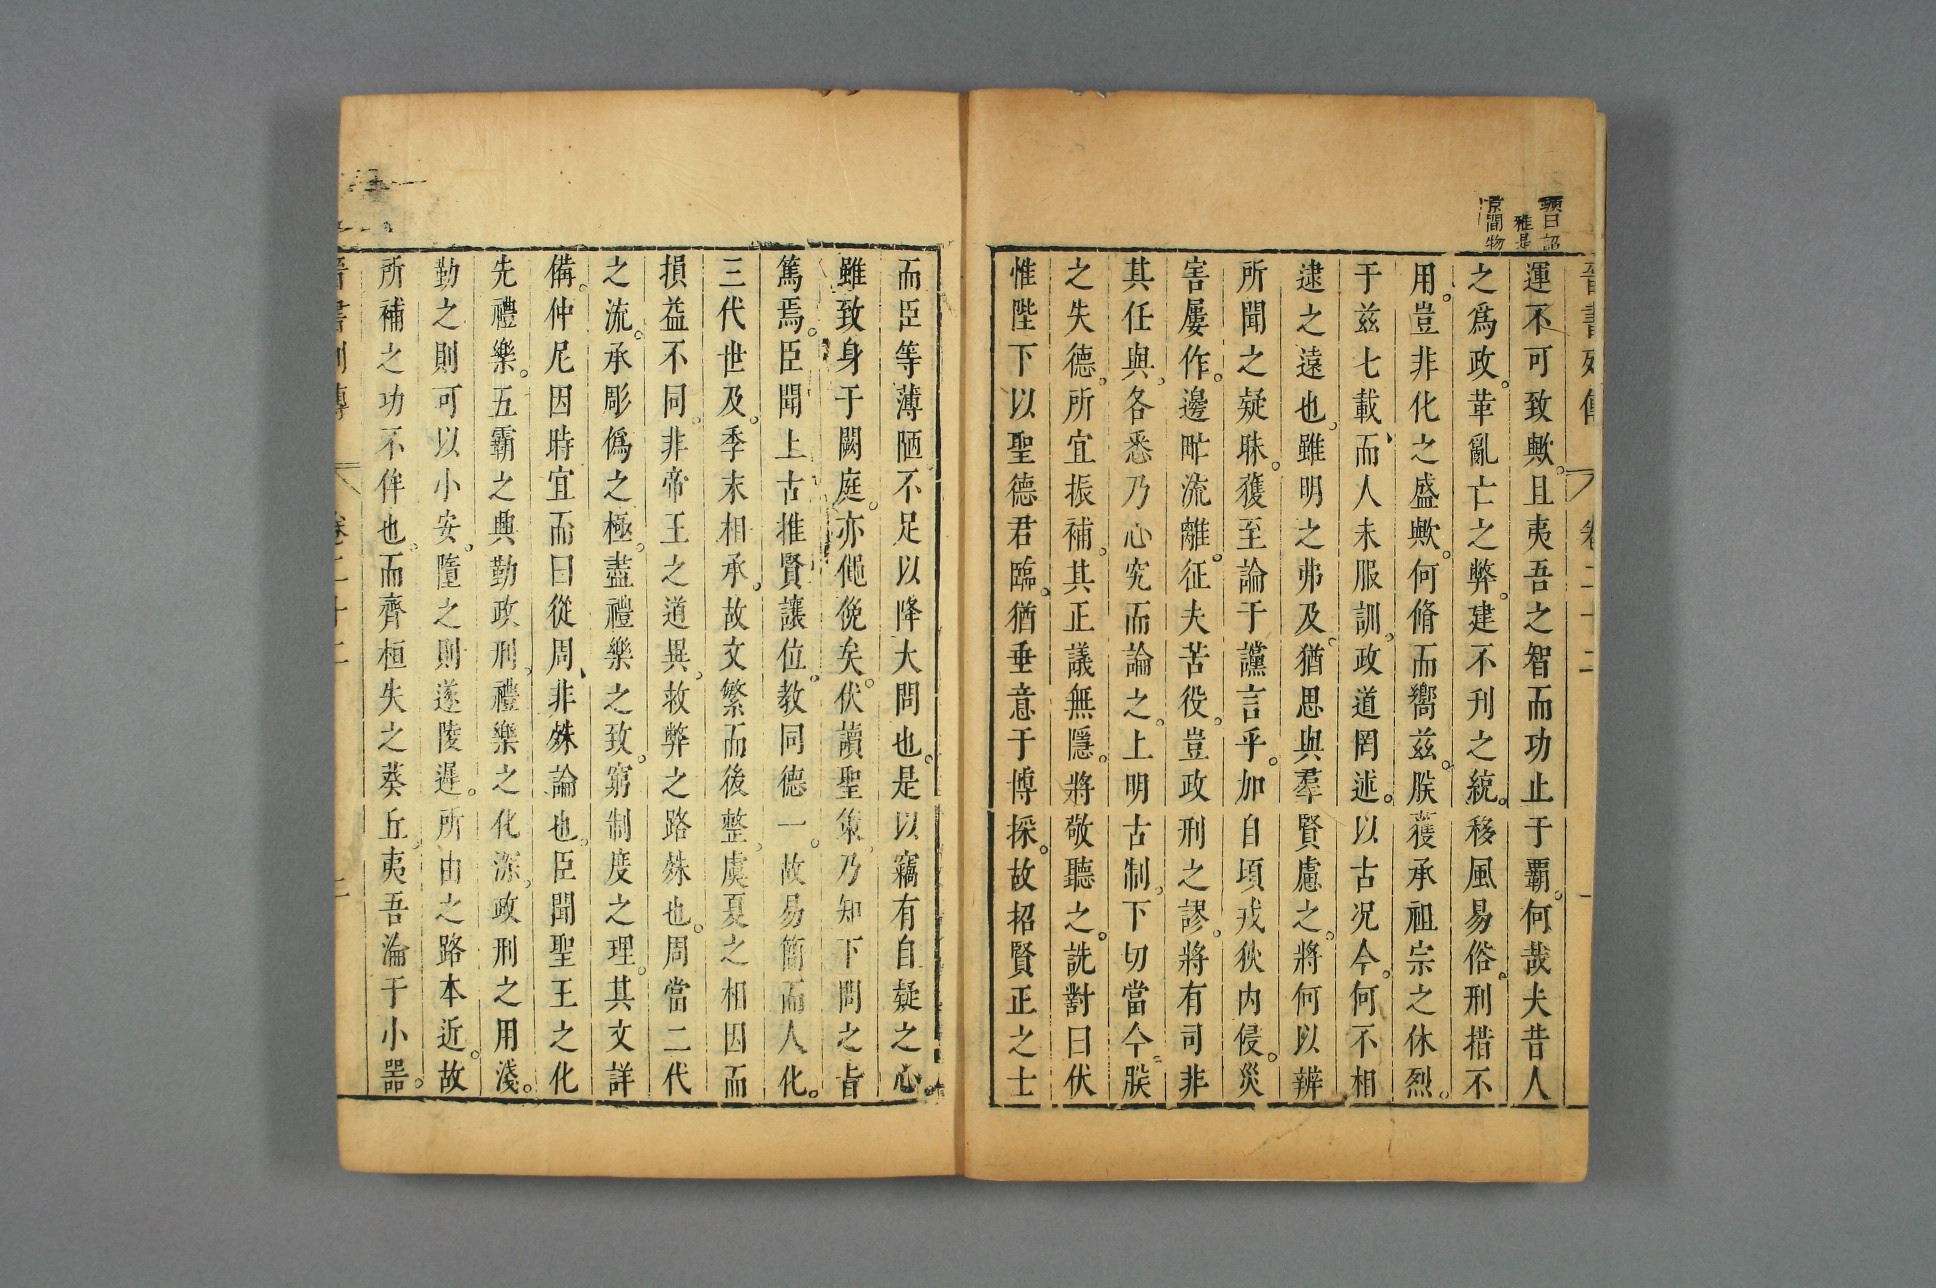 晉書列傳 卷二十二
運不可致歟。且夷吾之智而功止于霸。何哉夫昔人
之爲政。革亂亡之弊。建不刊之統。移風易俗。刑措不
用。豈非化之盛歟。何脩而嚮茲。朕獲承祖宗之休烈。
于茲七載而人未服訓。政道罔述。以古况今。何不相
逮之遠也。雖明之弗及。猶思與羣賢慮之。將何以辨
所聞之疑昧。獲至論于讜言乎。加自頃戎狄內侵。災
害屢作。邊甿流離。征夫苦役。豈政刑之謬。將有司非
其任與。各悉乃心究而論之。上明古制。下切當今。朕
之失德。所宜振補。其正議無隱。將敬聽之。詵對曰伏
惟陛下以聖德君臨。猶垂意于博採。故招賢正之士
而臣等薄陋不足以降大問也。是以竊有自疑之心。
雖致身于闕庭。亦僶俛矣。伏讀聖策。乃知下問之旨
篤焉。臣聞上古推賢讓位。教同德一。故易簡而人化。
三代世及。季末相承。故文繁而後整。虞夏之相因而
損益不同。非帝王之道異。救弊之路殊也。周當二代
之流。承彫僞之極。盡禮樂之致。窮制度之理。其文詳
備。仲尼因時宜而曰從周。非殊論也。臣聞聖王之化
先禮樂。五霸之興勤政刑。禮樂之化深。政刑之用淺。
勤之則可以小安。墮之則遂陵遲。所由之路本近。故
所補之功不侔也。而齊桓失之葵丘。夷吾淪于小器。
晉書列傳 卷二十二